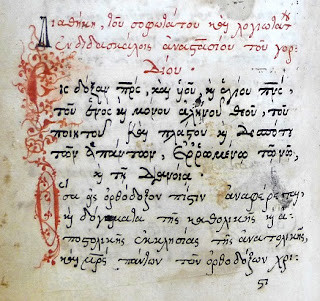 Διαθήκη, τοῦ σοφωτάτου καὶ λογιωτάτου
ἐν διδασκάλοις ἀναστασίου τοῦ γορ-
δίου.
Εἰς δόξαν πρς, καὶ υἱοῦ, καὶ ἁγίου πνς,
τοῦ ἑνος κ μόνου ἀληνοῦ θεοῦ, τοῦ
ποιητοῦ καὶ πλάστου κ δεσπότου
τῶν ἁπάντων, ἐρρωμένω τῶ νῶ,
κ τῇ διανοία.
Ὅσα ὡς ὀρθόδοξον πίστιν ἀναφέρεται,
κ δόγματα τῆς καθολικῆς κ ἀ-
ποστολικῆς ἐκκλησίας τῆς ἀνατολικῆς,
καὶ πάντων τῶν ὀρθοδόξων χρι-